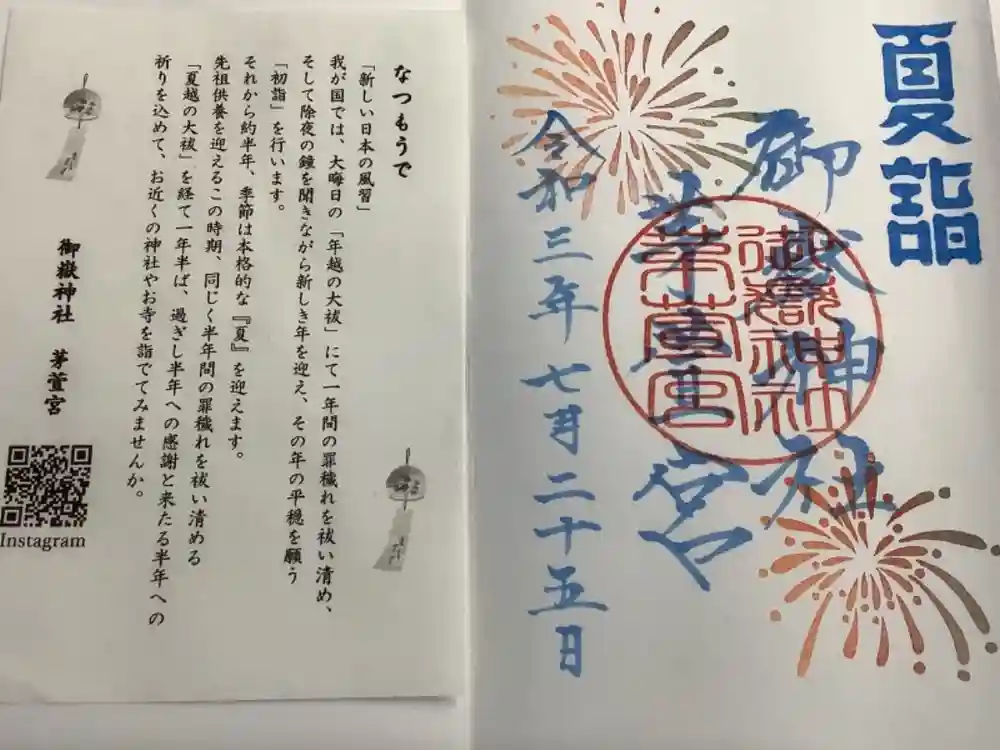 夏詣
御嶽神社
茅萱宮
令和三年七月二十五日
御嶽神社
茅萱宮
なつもうで
「新しい日本の風習」
我が国では、大晦日の「年越の大祓」にて一年間の罪穢れを祓い清め、
そして除夜の鐘を聞きながら新しき年を迎え、その年の平穏を願う
「初詣」を行います。
それから約半年、季節は本格的な『夏』を迎えます。
先祖供養を迎えるこの時期、同じく半年間の罪穢れを祓い清める
「夏越の大祓」を経て一年半ば、過ぎし半年への感謝と来たる半年への
祈りを込めて、お近くの神社やお寺を詣でてみませんか。
御嶽神社 茅萱宮
Instagram